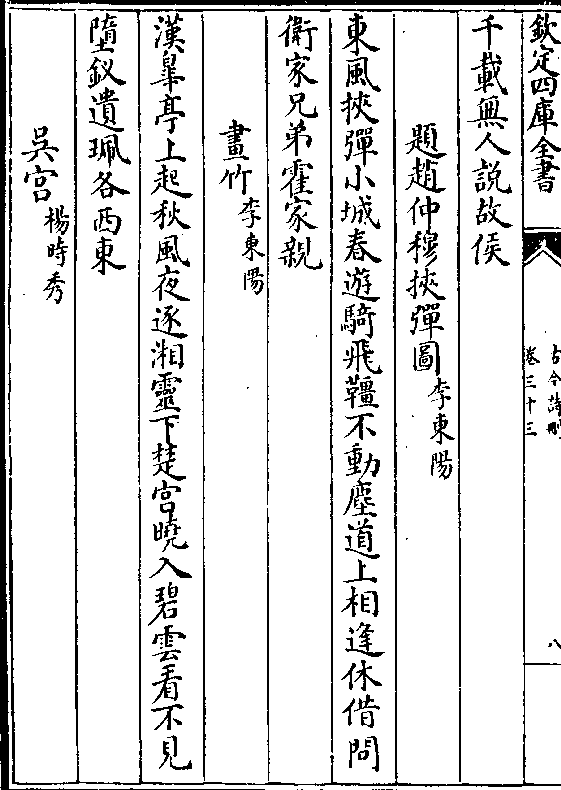 欽定四庫全書
古今詩刪
卷三十三
八
千載無人說故侯
題趙仲穆挾彈圖 李東陽
東風挾彈小城春遊騎飛韁不動塵道上相逢休借問
衛家兄弟霍家親
畫竹 李東陽
漢臯亭上起秋風夜逐湘靈下楚宮曉入碧雲看不見
墮釵遺珮各西東
吳宮 楊時秀